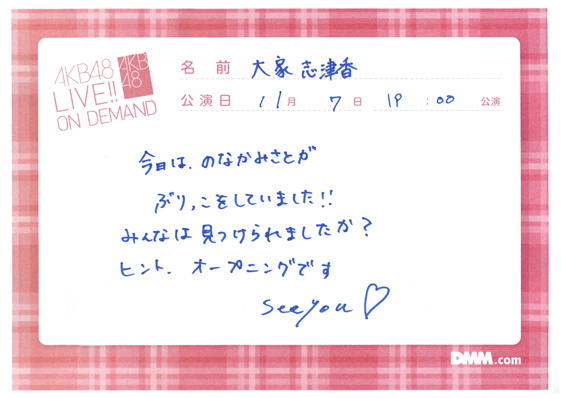 AKB48
LIVE!!
ON DEMAND
AKB
48
名 前 大家志津香
公演日 11月 7日 19:00 公演
今日は、のなかみさとが
ぶりっこをしていました!!
みんなは見つけられましたか?
ヒント、オープニングです
see you♡
DMM.com